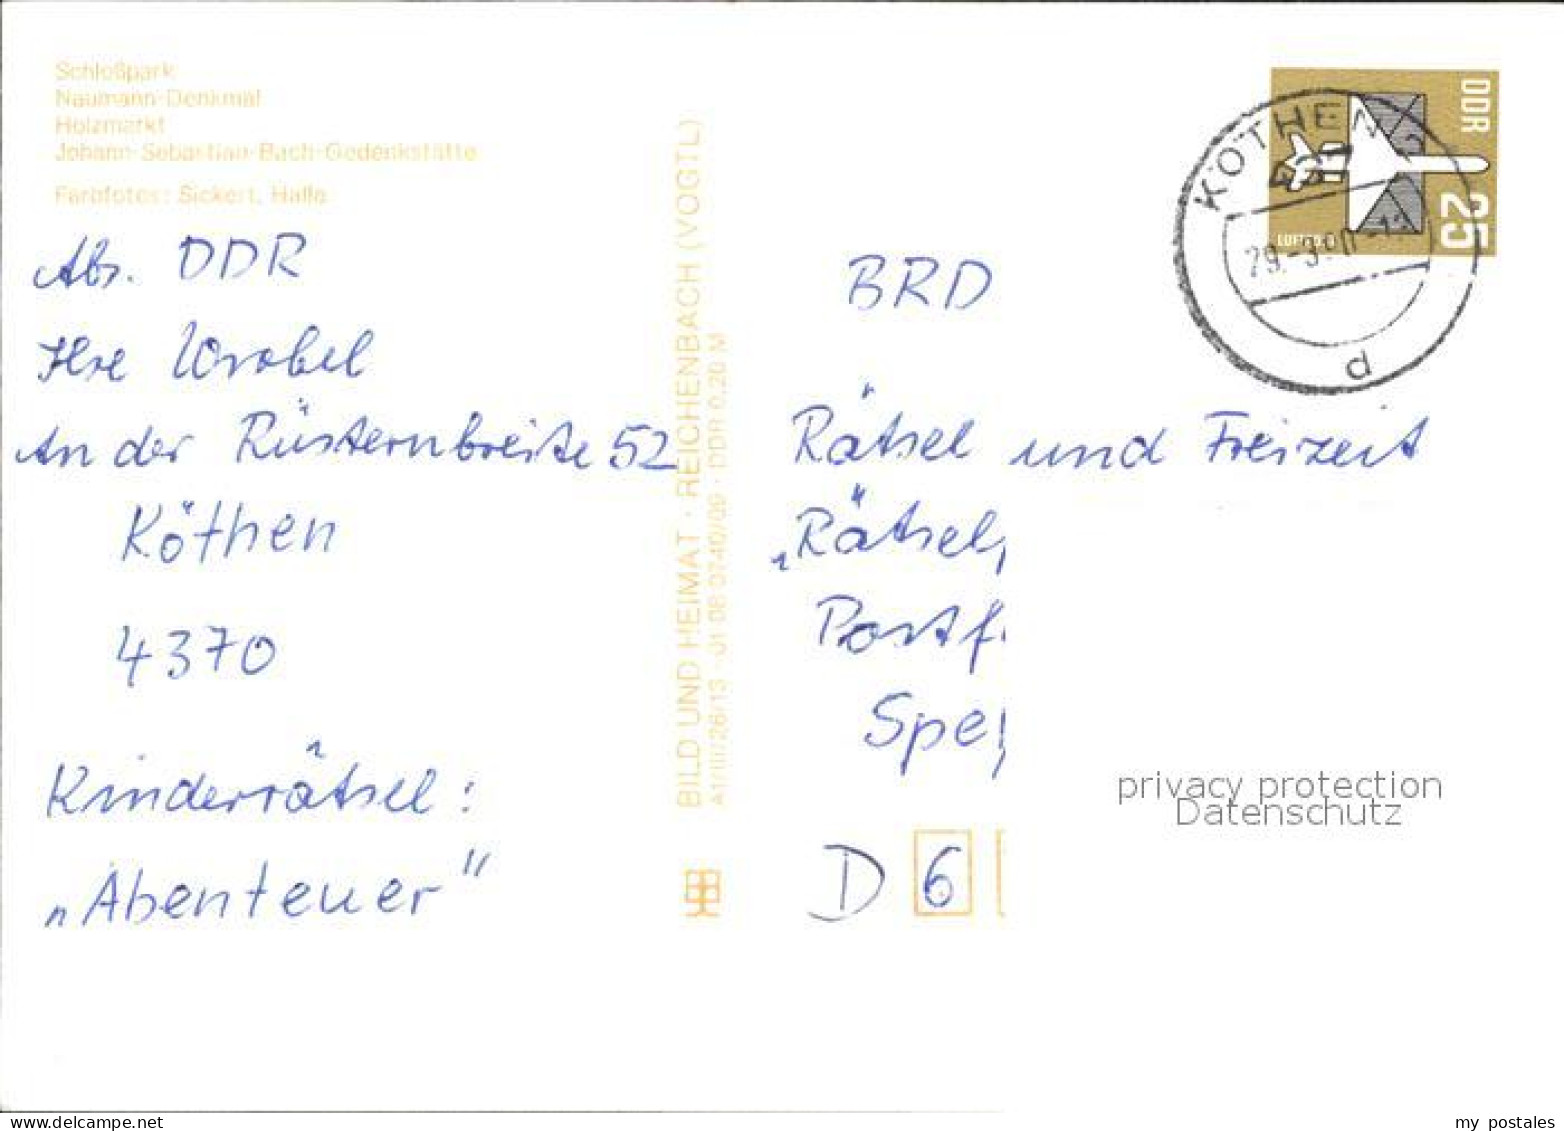 Schloßpark
Naumann-Denkmal
Holzmarkt
Johann-Sebastian-Bach-Gedenkstätte
Farbfotos: Sickert, Halle
Abs. DDR
Ilse Wrobel
An der Rüsternbreite 52
Köthen
4370
Kinderrätsel:
„Abenteuer"
BILD UND HEIMAT · REICHENBACH (VOGTL)
A1/III/26/13 · 01 08 0740/09 · DDR 0,20 M
DDR
25
KÖTHEN
29.-3.90
d
BRD
Rätsel und Freizeit
„Rätsel,
Postf
Spey
D 6
privacy protection
Datenschutz
my postales